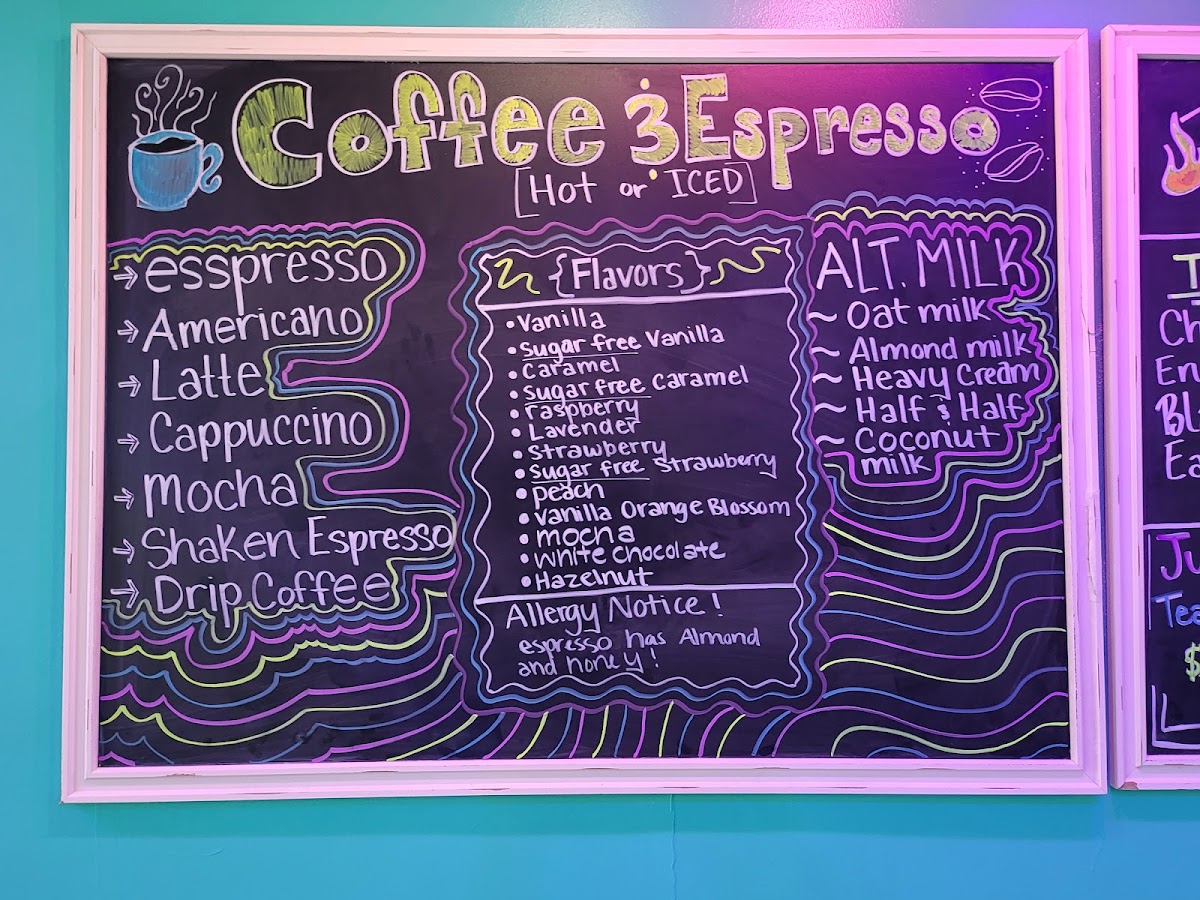 Coffee & Espresso
[Hot or ICED]
→ esspresso
→ Americano
→ Latte
→ Cappuccino
→ mocha
→ Shaken Espresso
→ Drip Coffee
{Flavors}
• Vanilla
• Sugar free Vanilla
• Caramel
• Sugar free Caramel
• raspberry
• Lavender
• Strawberry
• Sugar free Strawberry
• peach
• Vanilla Orange Blossom
• mocha
• White chocolate
• Hazelnut
Allergy Notice!
espresso has Almond
and honey!
ALT. MILK
~ Oat milk
~ Almond milk
~ Heavy Cream
~ Half & Half
~ Coconut
milk
$